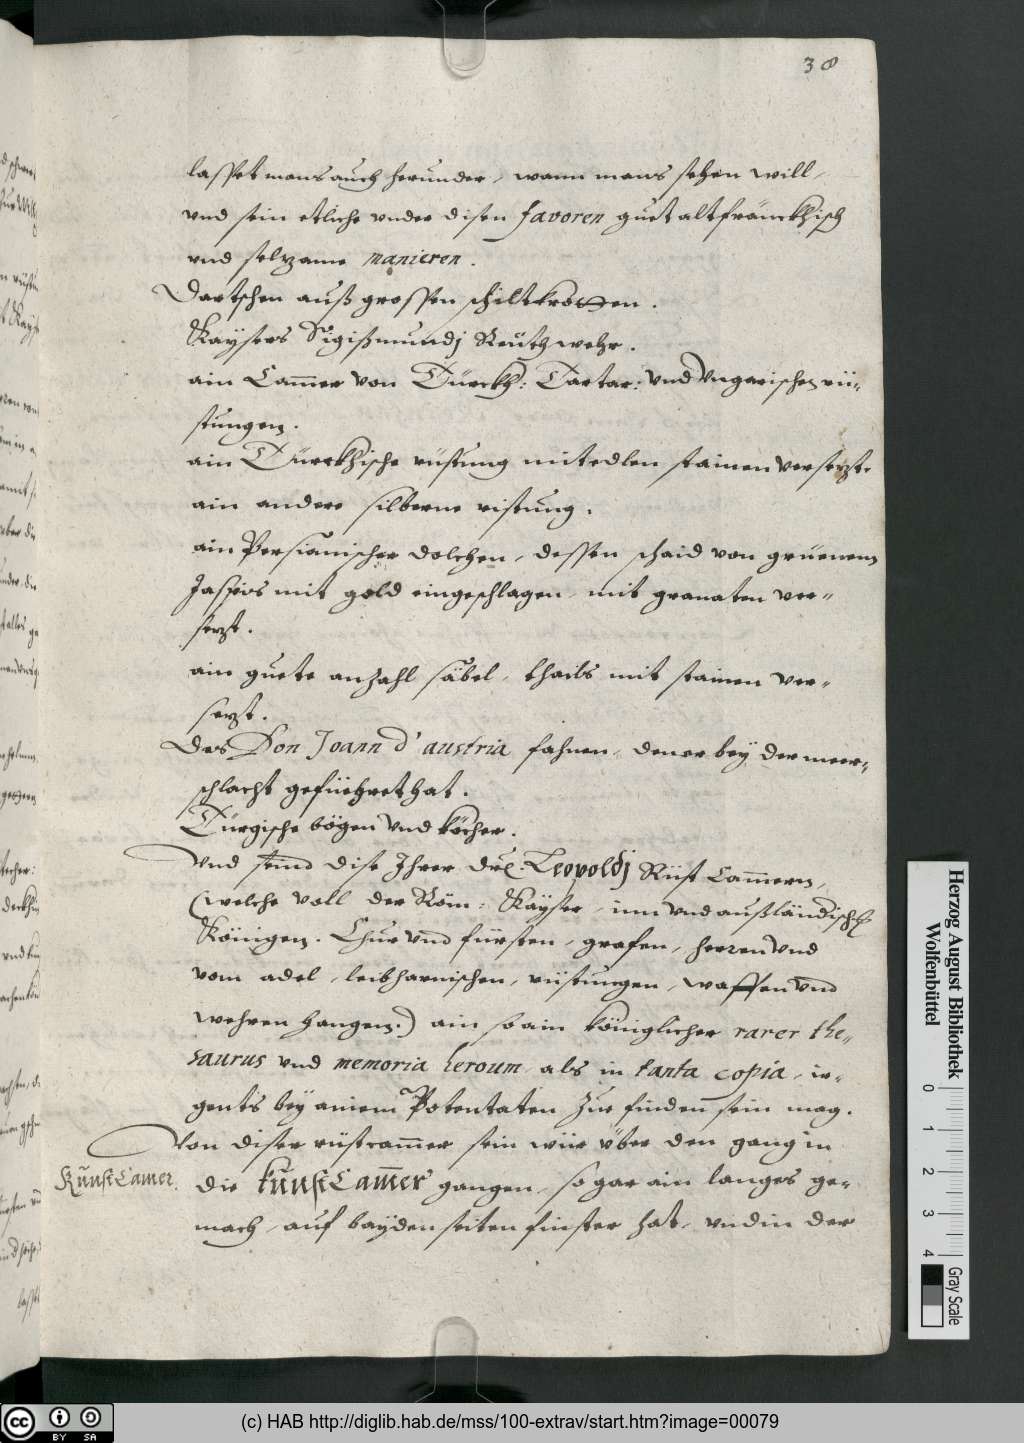 38
lasset mans auch herunder, wann mans sehen will,
vnd sein etliche vnder disen favoren guet altfränckhisch
vnd selzame manieren.
Dartschen auß grossen schiltkrotten.
Kaysers Sigißmundj Reüth wehr.
ain Cam̄er von Türckh: Tartar: vnd Vngarischen rü=
stungen.
ain Türckhische rüstung mit edlen stainen versezt.
ain andere silberne ristung.
ain Persianischer dolchen, dessen schaid von grüenem
Jaspis mit gold eingeschlagen, mit granaten ver=
sezt.
ain guete anzahl säbel, thails mit stainen ver=
sezt.
Des Don Joann d' austria fahnen, den er bey der meer=
schlacht gefüehret hat.
Türgische bögen vnd köcher.
Vnd seind dise Ihrer Leopoldj Rüst Cam̄ern,
(welche voll der Röm: Kayser, inn vnd außländisch
Königen. Chur vnd fürsten, grafen, herren vnd
vom adel, leibharnischen, rüstungen, waffen vnd
wehren hangen.) ain so ain königlicher rarer the=
saurus vnd memoria heroum, als in tanta copia, ir=
gents bey ainem Potentaten zue finden sein mag.
Von diser rüstcam̄er sein wür über den gang in
Kunst Camer.
die kunst Cam̄er gangen, so gar ain langes ge=
mach, auf bayden seiten finster hat, vnd in der
Herzog August Bibliothek
Wolfenbüttel
0 1 2 3 4
Gray Scale
cc BY SA
(c) HAB http://diglib.hab.de/mss/100-extrav/start.htm?image=00079